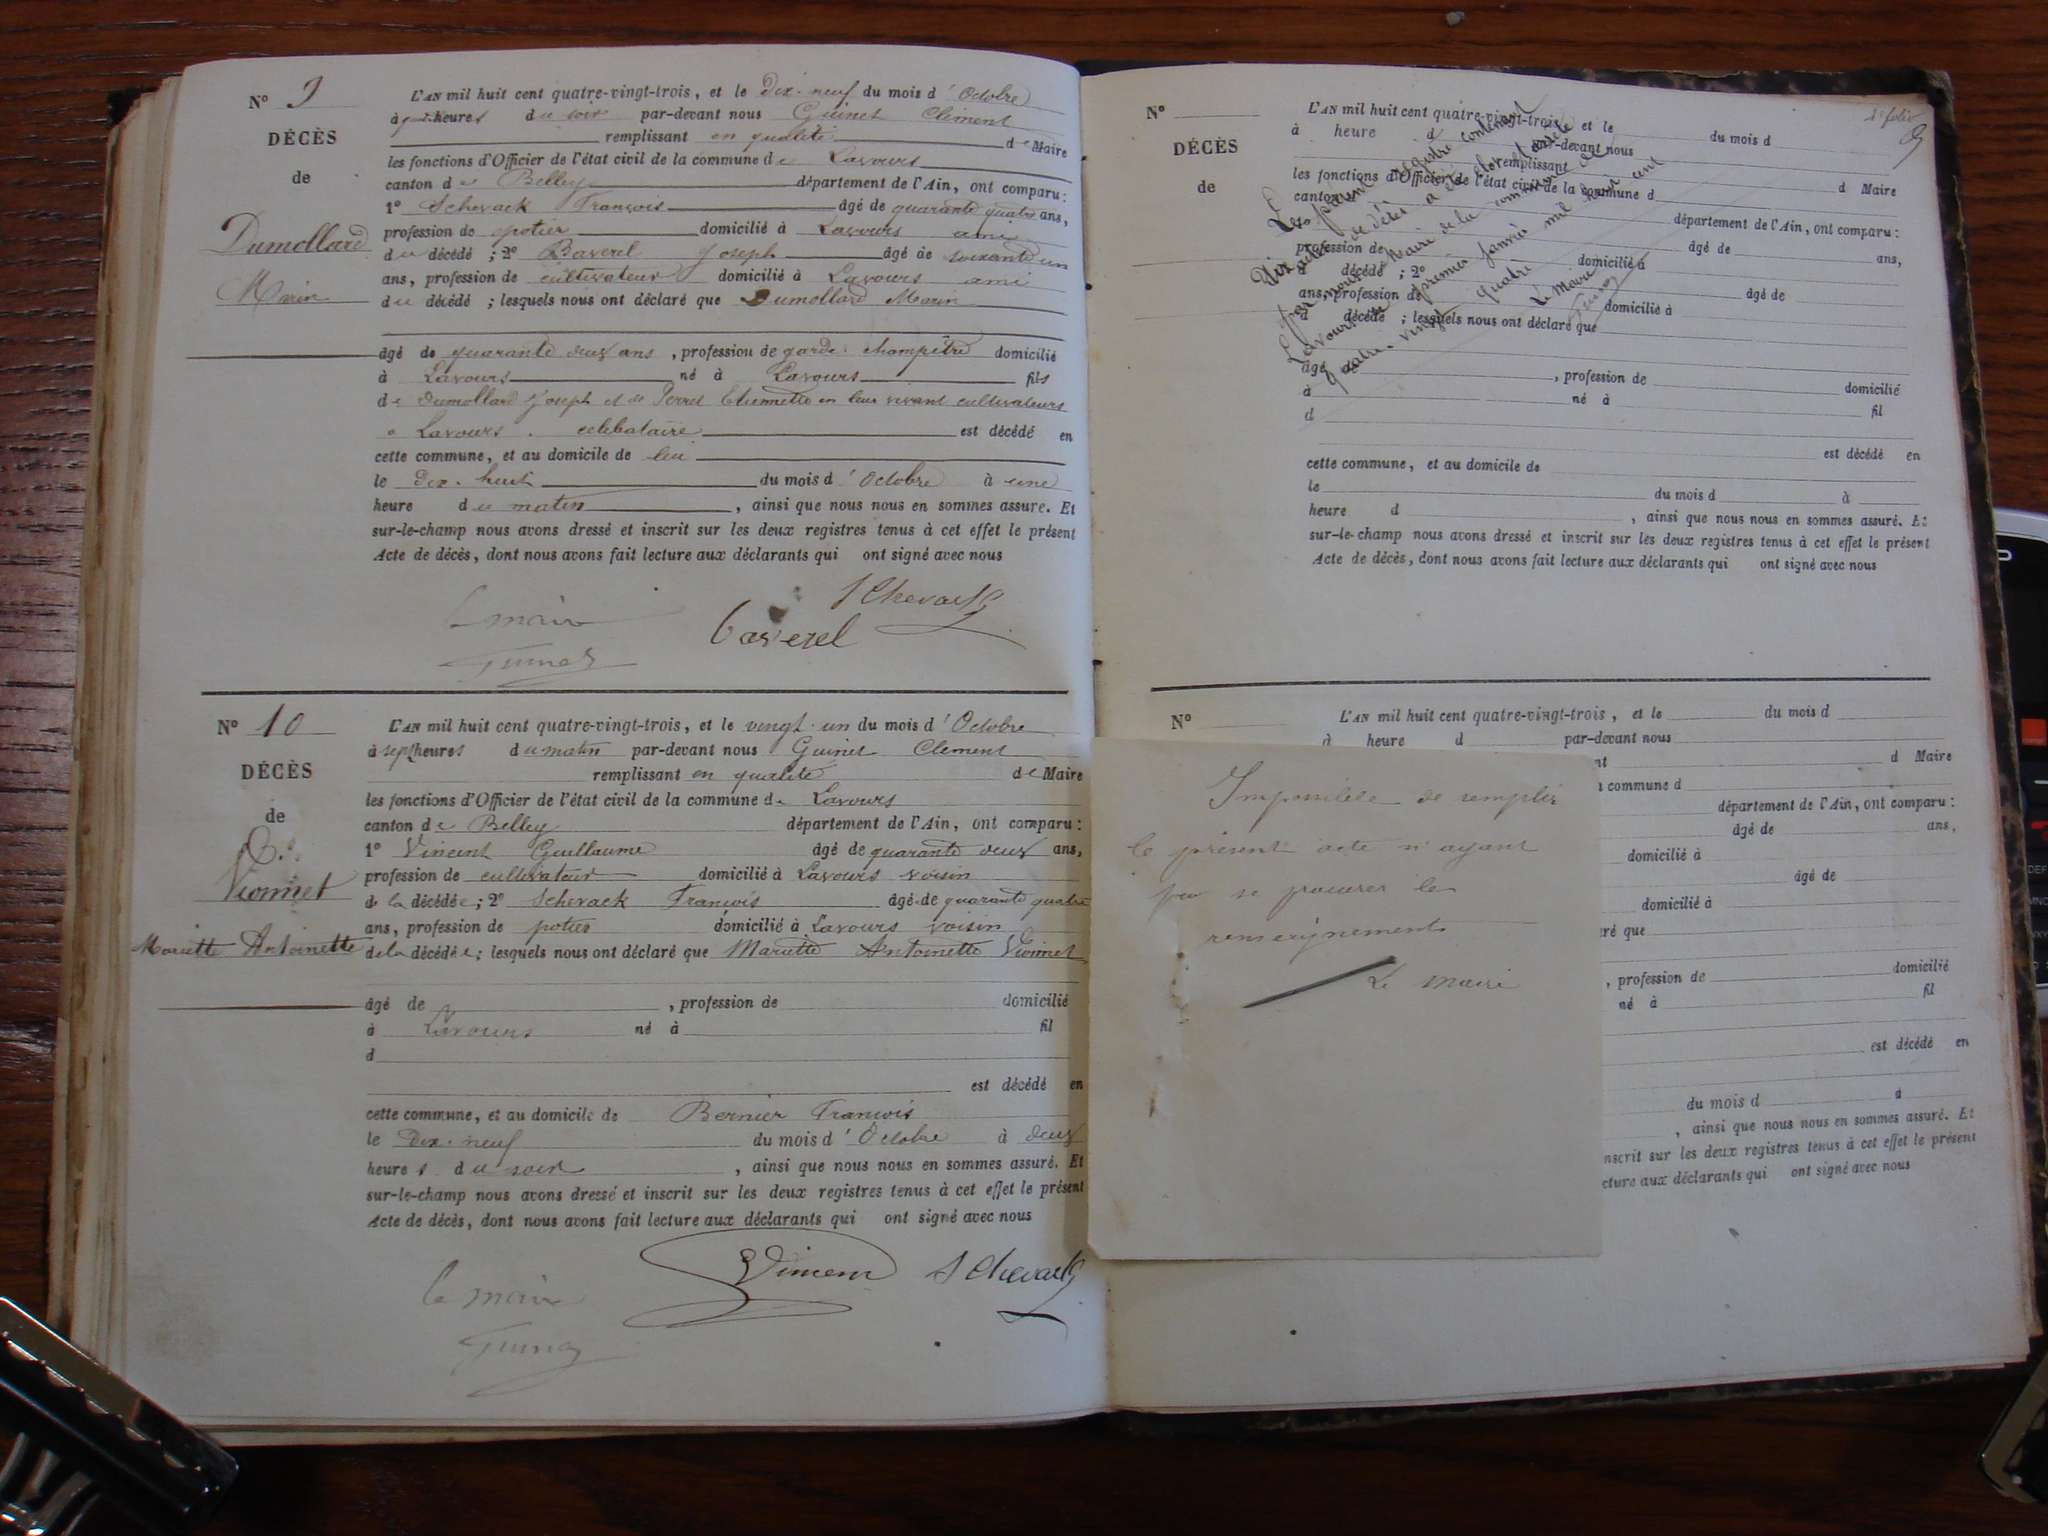 N° 9
L'AN mil huit cent quatre-vingt-trois, et le dix-neuf du mois d'Octobre
à heures du soir par-devant nous Guinet Clément
DÉCÈS
remplissant en qualité de Maire
les fonctions d'Officier de l'état civil de la commune de Lavours
de
canton de Belley département de l'Ain, ont comparu:
1° Schevack François âgé de quarante quatre ans,
Dumollard
profession de potier domicilié à Lavours ami
du décédé ; 2° Baverel Joseph âgé de soixante un
Marin
ans, profession de cultivateur domicilié à Lavours ami
du décédé ; lesquels nous ont déclaré que Dumollard Marin
âgé de quarante deux ans, profession de garde-champêtre domicilié
à Lavours né à Lavours fils
de Dumollard Joseph et de Perret Etiennette en leur vivant cultivateurs
à Lavours. celibataire est décédé en
cette commune, et au domicile de lui
le dix-huit du mois d'Octobre à une
heure du matin, ainsi que nous nous en sommes assuré. Et
sur-le-champ nous avons dressé et inscrit sur les deux registres tenus à cet effet le présent
Acte de décès, dont nous avons fait lecture aux déclarants qui ont signé avec nous
Le maire Baverel SChevack
Guinet
N° 10
L'AN mil huit cent quatre-vingt-trois, et le vingt-un du mois d'Octobre
à sept heures du matin par-devant nous Guinet Clément
DÉCÈS
remplissant en qualité de Maire
les fonctions d'Officier de l'état civil de la commune de Lavours
de
canton de Belley département de l'Ain, ont comparu:
1° Vincent Guillaume âgé de quarante deux ans,
Vionnet
profession de cultivateur domicilié à Lavours voisin
de la décédée; 2° Schevack François âgé de quarante quatre
ans, profession de potier domicilié à Lavours voisin
Mariette Antoinette
de la décédée; lesquels nous ont déclaré que Mariette Antoinette Vionnet
âgé de , profession de domicilié
à Lavours né à fil
d
est décédé en
cette commune, et au domicile de Bernier François
le Dix-neuf du mois d'Octobre à deux
heures du soir, ainsi que nous nous en sommes assuré. Et
sur-le-champ nous avons dressé et inscrit sur les deux registres tenus à cet effet le présent
Acte de décès, dont nous avons fait lecture aux déclarants qui ont signé avec nous
Le maire Vincent SChevack
Guinet
N°
L'AN mil huit cent quatre-vingt-trois, et le du mois d
à heure d par-devant nous
DÉCÈS
remplissant d Maire
les fonctions d'Officier de l'état civil de la commune d
de
canton département de l'Ain, ont comparu:
âgé de ans,
profession de domicilié à
décédé ; 2° âgé de
ans, profession de domicilié à
d décédé ; lesquels nous ont déclaré que
âgé , profession de domicilié
à né à fil
d
est décédé en
cette commune, et au domicile de
le du mois d à
heure d , ainsi que nous nous en sommes assuré. Et
sur-le-champ nous avons dressé et inscrit sur les deux registres tenus à cet effet le présent
Acte de décès, dont nous avons fait lecture aux déclarants qui ont signé avec nous
Le présent registre contenant
Dix actes de décès a été clos et arrêté
par nous Maire de la commune de
Lavours le premier janvier mil huit cent
quatre-vingt quatre
Le Maire
Guinet
N°
L'AN mil huit cent quatre-vingt-trois, et le du mois d
à heure d par-devant nous
d Maire
commune d
département de l'Ain, ont comparu:
âgé de ans,
domicilié à
âgé de
domicilié à
ré que
, profession de domicilié
né à fil
est décédé en
du mois d à
, ainsi que nous nous en sommes assuré. Et
nscrit sur les deux registres tenus à cet effet le présent
cture aux déclarants qui ont signé avec nous
Impossible de remplir
le présent acte n'ayant
pu se procurer les
renseignements
Le maire